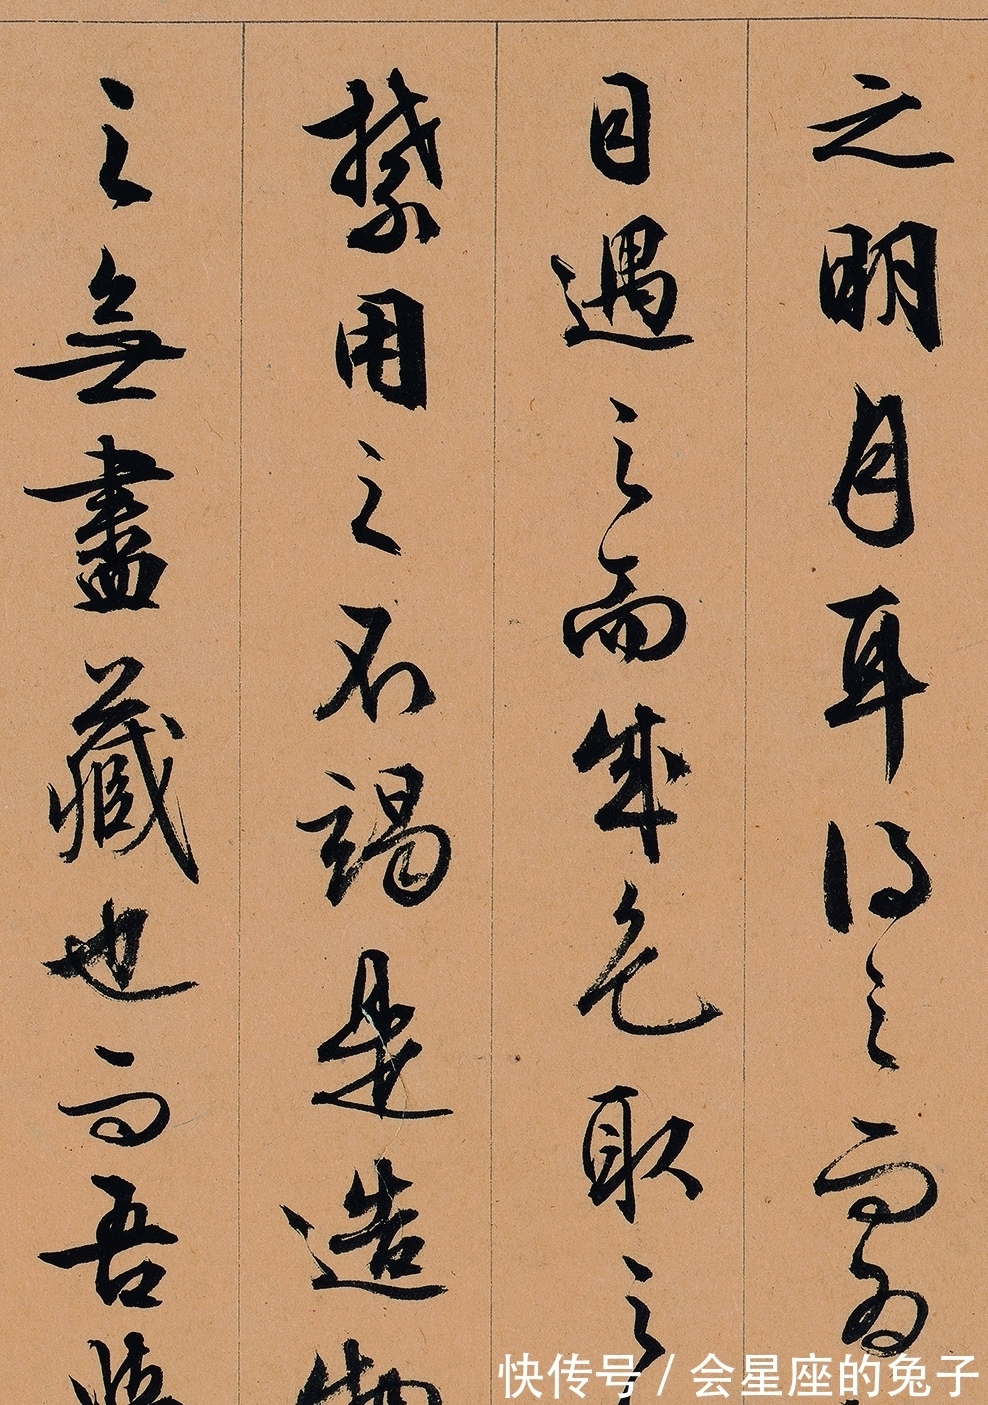 之明月耳得之而為
目遇之而成色取之
禁用之不竭是造物
之無盡藏也而吾
快传号 / 会星座的兔子